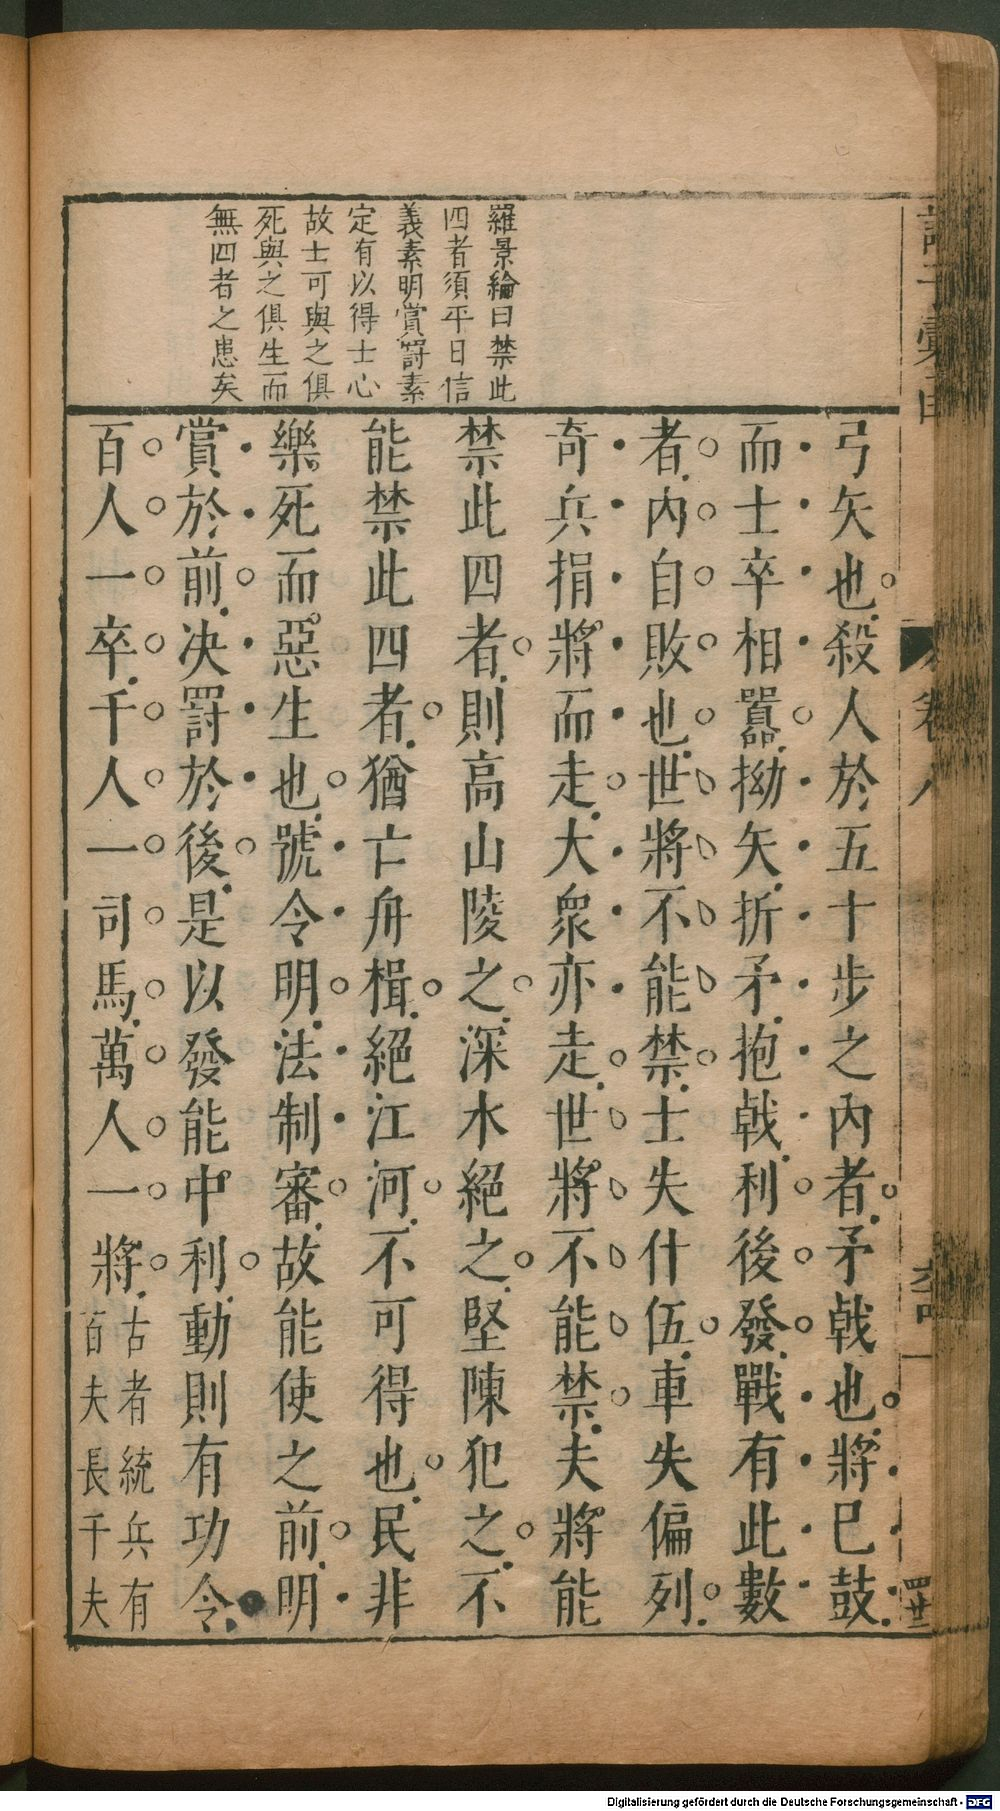 羅景綸曰禁此
四者須平日信
義素明賞罸素
定有以得士心
故士可與之俱
死與之俱生而
無四者之患矣
弓矢也殺人於五十步之內者矛戟也將巳鼓
而士卒相囂拗矢折矛抱戟利後發戰有此數
者內自敗也世將不能禁士失什伍車失偏列
奇兵捐將而走大衆亦走世將不能禁夫將能
禁此四者則高山陵之深水絕之堅陳犯之不
能禁此四者猶亡舟楫絕江河不可得也民非
樂死而惡生也號令明法制審故能使之前明
賞於前决罸於後是以發能中利動則有功令
百人一卒千人一司馬萬人一將古者統兵有
百夫長千夫
Digitalisierung gefördert durch die Deutsche Forschungsgemeinschaft - DFG